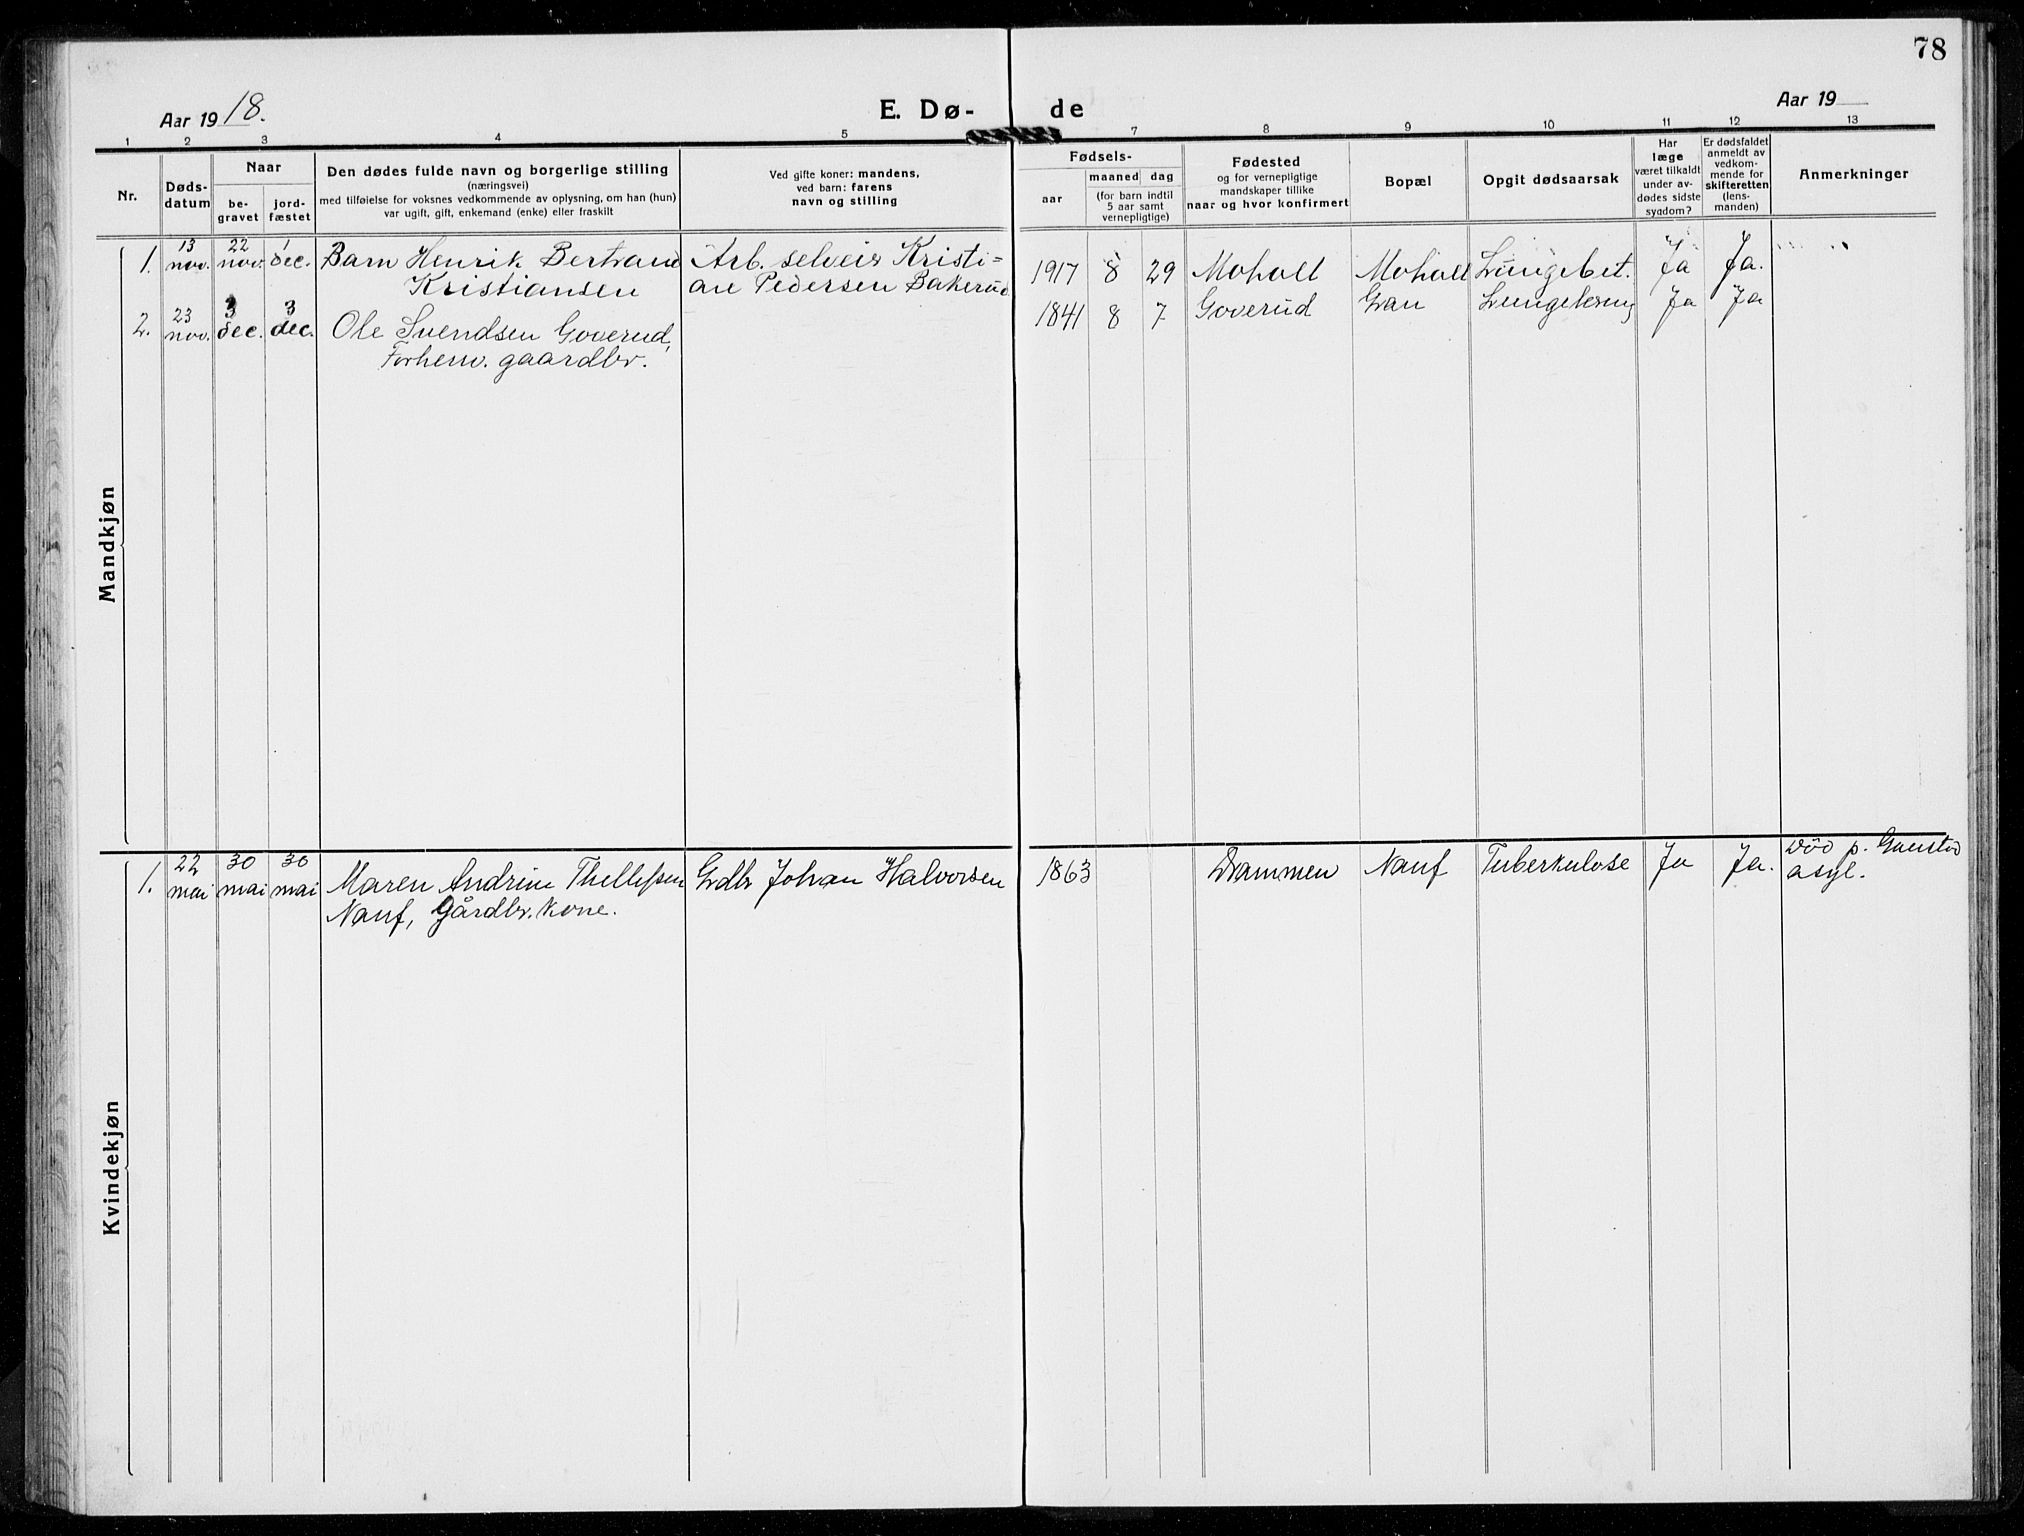 78
Aar 1918.
E. Dø-
de
Aar 19
1 2 3 4 5 7 8 9 10 11 12 13
Nr.
Døds-
datum
Naar
be-
gravet
jord-
fæstet
Den dødes fulde navn og borgerlige stilling
(næringsvei)
med tilføielse for voksnes vedkommende av oplysning, om han (hun)
var ugift, gift, enkemand (enke) eller fraskilt
Ved gifte koner: mandens,
ved barn: farens
navn og stilling
Fødsels-
aar
maaned dag
(for barn indtil
5 aar samt
vernepligtige)
Fødested
og for vernepligtige
mandskaper tillike
naar og hvor konfirmert
Bopæl
Opgit dødsaarsak
Har
læge
været tilkaldt
under av-
dødes sidste
sygdom?
Er dødsfaldet
anmeldt av
vedkom-
mende for
skifteretten
(lens-
manden)
Anmerkninger
Mandkjøn
13 22 1
1. nov. nov. dec. Barn Henrik Bertrand Arb. selveier Kristi= 1917 8 29 Moholt Moholt Lungebet. Ja Ja.
Kristiansen ane Pedersen Bakerud
23 3 3
2. nov. dec. dec. Ole Svendsen Goverud, 1841 8 7 Goverud Gran Ja Ja
Forhenv. gaardbr.
Kvindekjøn
22 30 30
1. mai mai mai Maren Andrine Thellefsen Grdbr Johan Halvorsen 1863 Drammen Nauf Tuberkulose Ja Ja. Død p. Gaustad
Nauf, Gårdbr. kone. asyl.